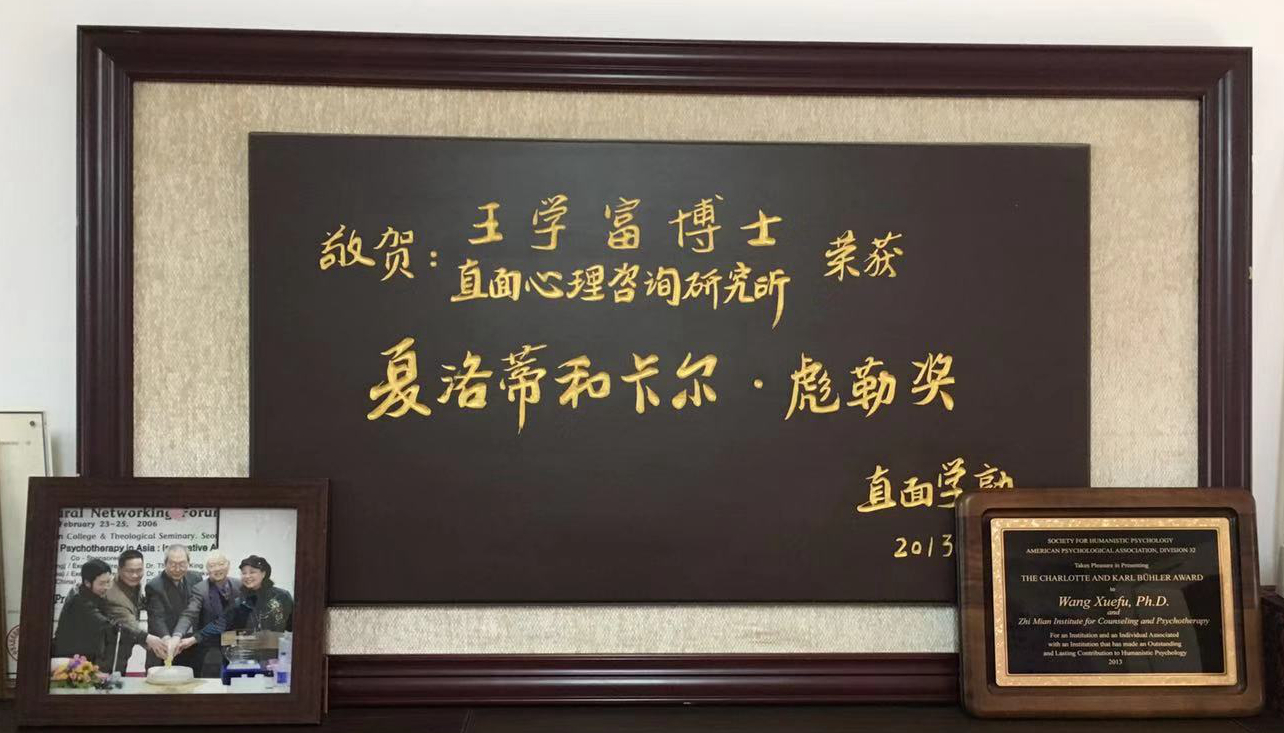 敬贺：
王学富博士
直面心理咨询研究所
荣获
夏洛蒂和卡尔·彪勒奖
直面学
2013
ral Networking Forum
February 23~25, 2006
n College & Theological Seminary, Seo
Psychotherapy in Asia :
SOCIETY FOR HUMANISTIC PSYCHOLOGY
AMERICAN PSYCHOLOGICAL ASSOCIATION, DIVISION 32
Takes Pleasure in Presenting
THE CHARLOTTE AND KARL BÜHLER AWARD
to
Wang Xuefu, Ph.D.
and
Zhi Mian Institute for Counseling and Psychotherapy
For an Institution and an Individual Associated
with an Institution that has made an Outstanding
and Lasting Contribution to Humanistic Psychology
2013